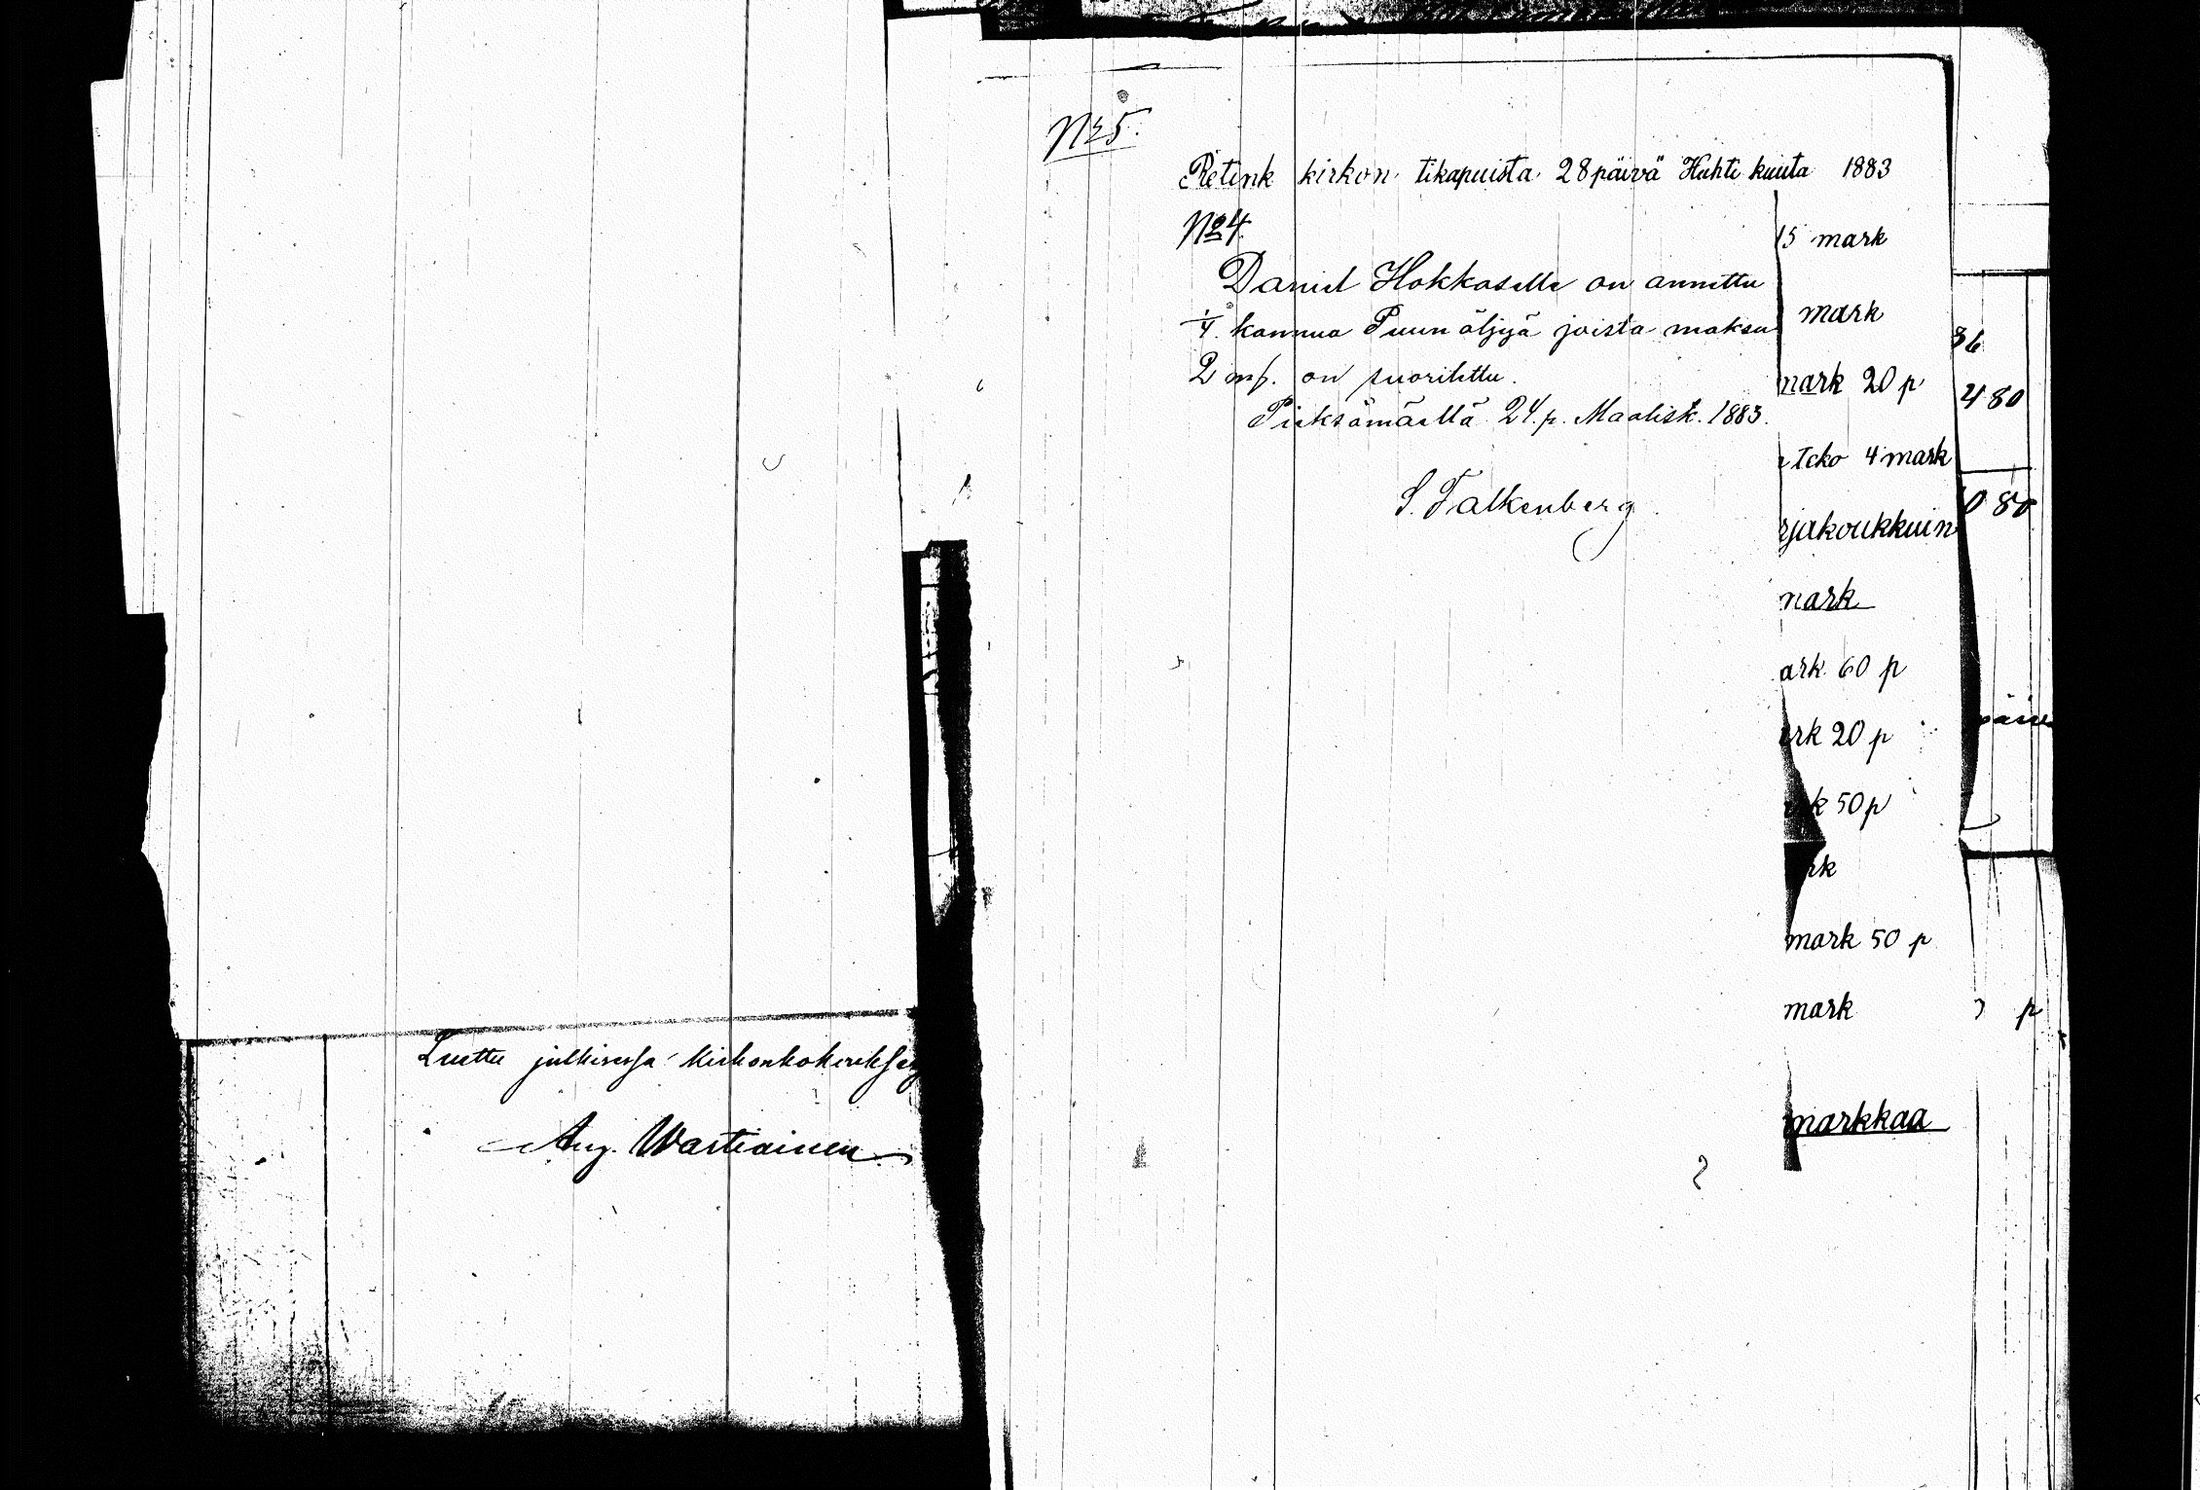 Luettu julkisessa kirkonkokouksessa
Aug. Wartiainen
Nr 5.
Retink kirkon tikapuista 28 päivä Huhti kuuta 1883
No 4.
15 mark
Daniel Hokkaselle on annettu
mark
1/4 kannua Puun öljyä joista maksu
36
2 mk. on suoritettu.
nark 20 p
4 80
Pieksämäellä 24. p. Maalisk. 1883.
teko 4 mark
S. Falkenberg
0 80
rjakoukkuin
nark
ark 60 p
ark 20 p
rk 50 p
rk
mark 50 p
mark
p
markkaa